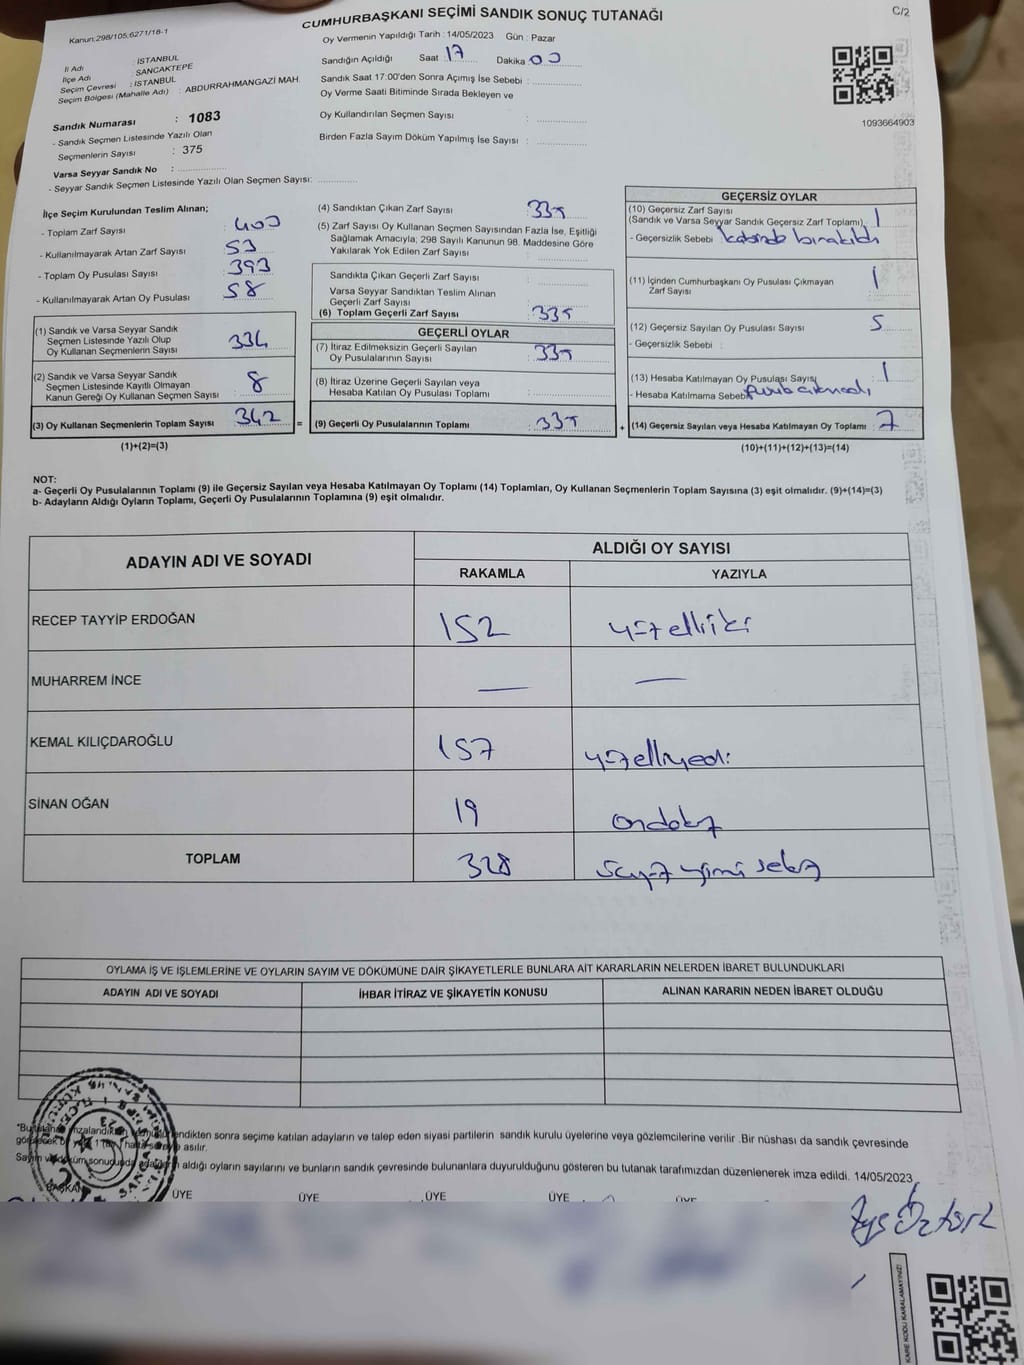 CUMHURBAŞKANI SEÇİMİ SANDIK SONUÇ TUTANAĞI
C/2
Kanun:298/105;6271/18-1
Oy Vermenin Yapıldığı Tarih : 14/05/2023 Gün : Pazar
İl Adı : İSTANBUL
İlçe Adı : SANCAKTEPE
Seçim Çevresi : İSTANBUL
Seçim Bölgesi (Mahalle Adı) : ABDURRAHMANGAZİ MAH.
Sandığın Açıldığı Saat : 17 Dakika : 00
Sandık Saat 17:00'den Sonra Açımış İse Sebebi :
Oy Verme Saati Bitiminde Sırada Bekleyen ve
Oy Kullandırılan Seçmen Sayısı :
Birden Fazla Sayım Döküm Yapılmış İse Sayısı :
1093664903
Sandık Numarası : 1083
- Sandık Seçmen Listesinde Yazılı Olan
Seçmenlerin Sayısı : 375
Varsa Seyyar Sandık No :
- Seyyar Sandık Seçmen Listesinde Yazılı Olan Seçmen Sayısı:
İlçe Seçim Kurulundan Teslim Alınan;
- Toplam Zarf Sayısı : 400
- Kullanılmayarak Artan Zarf Sayısı : 53
- Toplam Oy Pusulası Sayısı : 393
- Kullanılmayarak Artan Oy Pusulası : 58
(1) Sandık ve Varsa Seyyar Sandık
Seçmen Listesinde Yazılı Olup
Oy Kullanan Seçmenlerin Sayısı : 334
(2) Sandık ve Varsa Seyyar Sandık
Seçmen Listesinde Kayıtlı Olmayan
Kanun Gereği Oy Kullanan Seçmen Sayısı : 8
(3) Oy Kullanan Seçmenlerin Toplam Sayısı : 342
(1)+(2)=(3)
(4) Sandıktan Çıkan Zarf Sayısı : 335
(5) Zarf Sayısı Oy Kullanan Seçmen Sayısından Fazla İse, Eşitliği
Sağlamak Amacıyla; 298 Sayılı Kanunun 98. Maddesine Göre
Yakılarak Yok Edilen Zarf Sayısı :
Sandıkta Çıkan Geçerli Zarf Sayısı :
Varsa Seyyar Sandıktan Teslim Alınan
Geçerli Zarf Sayısı :
(6) Toplam Geçerli Zarf Sayısı : 335
GEÇERLİ OYLAR
(7) İtiraz Edilmeksizin Geçerli Sayılan
Oy Pusulalarının Sayısı : 335
(8) İtiraz Üzerine Geçerli Sayılan veya
Hesaba Katılan Oy Pusulası Toplamı :
= (9) Geçerli Oy Pusulalarının Toplamı : 335
GEÇERSİZ OYLAR
(10) Geçersiz Zarf Sayısı
(Sandık ve Varsa Seyyar Sandık Geçersiz Zarf Toplamı) : 1
- Geçersizlik Sebebi : kabinde bırakıldı
(11) İçinden Cumhurbaşkanı Oy Pusulası Çıkmayan
Zarf Sayısı : 1
(12) Geçersiz Sayılan Oy Pusulası Sayısı : 5
- Geçersizlik Sebebi :
(13) Hesaba Katılmayan Oy Pusulası Sayısı : 1
- Hesaba Katılmama Sebebi: çıkmadı
+ (14) Geçersiz Sayılan veya Hesaba Katılmayan Oy Toplamı : 7
(10)+(11)+(12)+(13)=(14)
NOT:
a- Geçerli Oy Pusulalarının Toplamı (9) ile Geçersiz Sayılan veya Hesaba Katılmayan Oy Toplamı (14) Toplamları, Oy Kullanan Seçmenlerin Toplam Sayısına (3) eşit olmalıdır. (9)+(14)=(3)
b- Adayların Aldığı Oyların Toplamı, Geçerli Oy Pusulalarının Toplamına (9) eşit olmalıdır.
ADAYIN ADI VE SOYADI
ALDIĞI OY SAYISI
RAKAMLA YAZIYLA
RECEP TAYYİP ERDOĞAN 152 yüzelliiki
MUHARREM İNCE — —
KEMAL KILIÇDAROĞLU 157 yüzelliyedi
SİNAN OĞAN 19 ondokuz
TOPLAM 328 yirmi sekiz
OYLAMA İŞ VE İŞLEMLERİNE VE OYLARIN SAYIM VE DÖKÜMÜNE DAİR ŞİKAYETLERLE BUNLARA AİT KARARLARIN NELERDEN İBARET BULUNDUKLARI
ADAYIN ADI VE SOYADI İHBAR İTİRAZ VE ŞİKAYETİN KONUSU ALINAN KARARIN NEDEN İBARET OLDUĞU
sonra seçime katılan adayların ve talep eden siyasi partilerin sandık kurulu üyelerine veya gözlemcilerine verilir .Bir nüshası da sandık çevresinde
asılır.
aldığı oyların sayılarını ve bunların sandık çevresinde bulunanlara duyurulduğunu gösteren bu tutanak tarafımızdan düzenlenerek imza edildi. 14/05/2023
BAŞKAN ÜYE ÜYE ÜYE ÜYE ÜYE